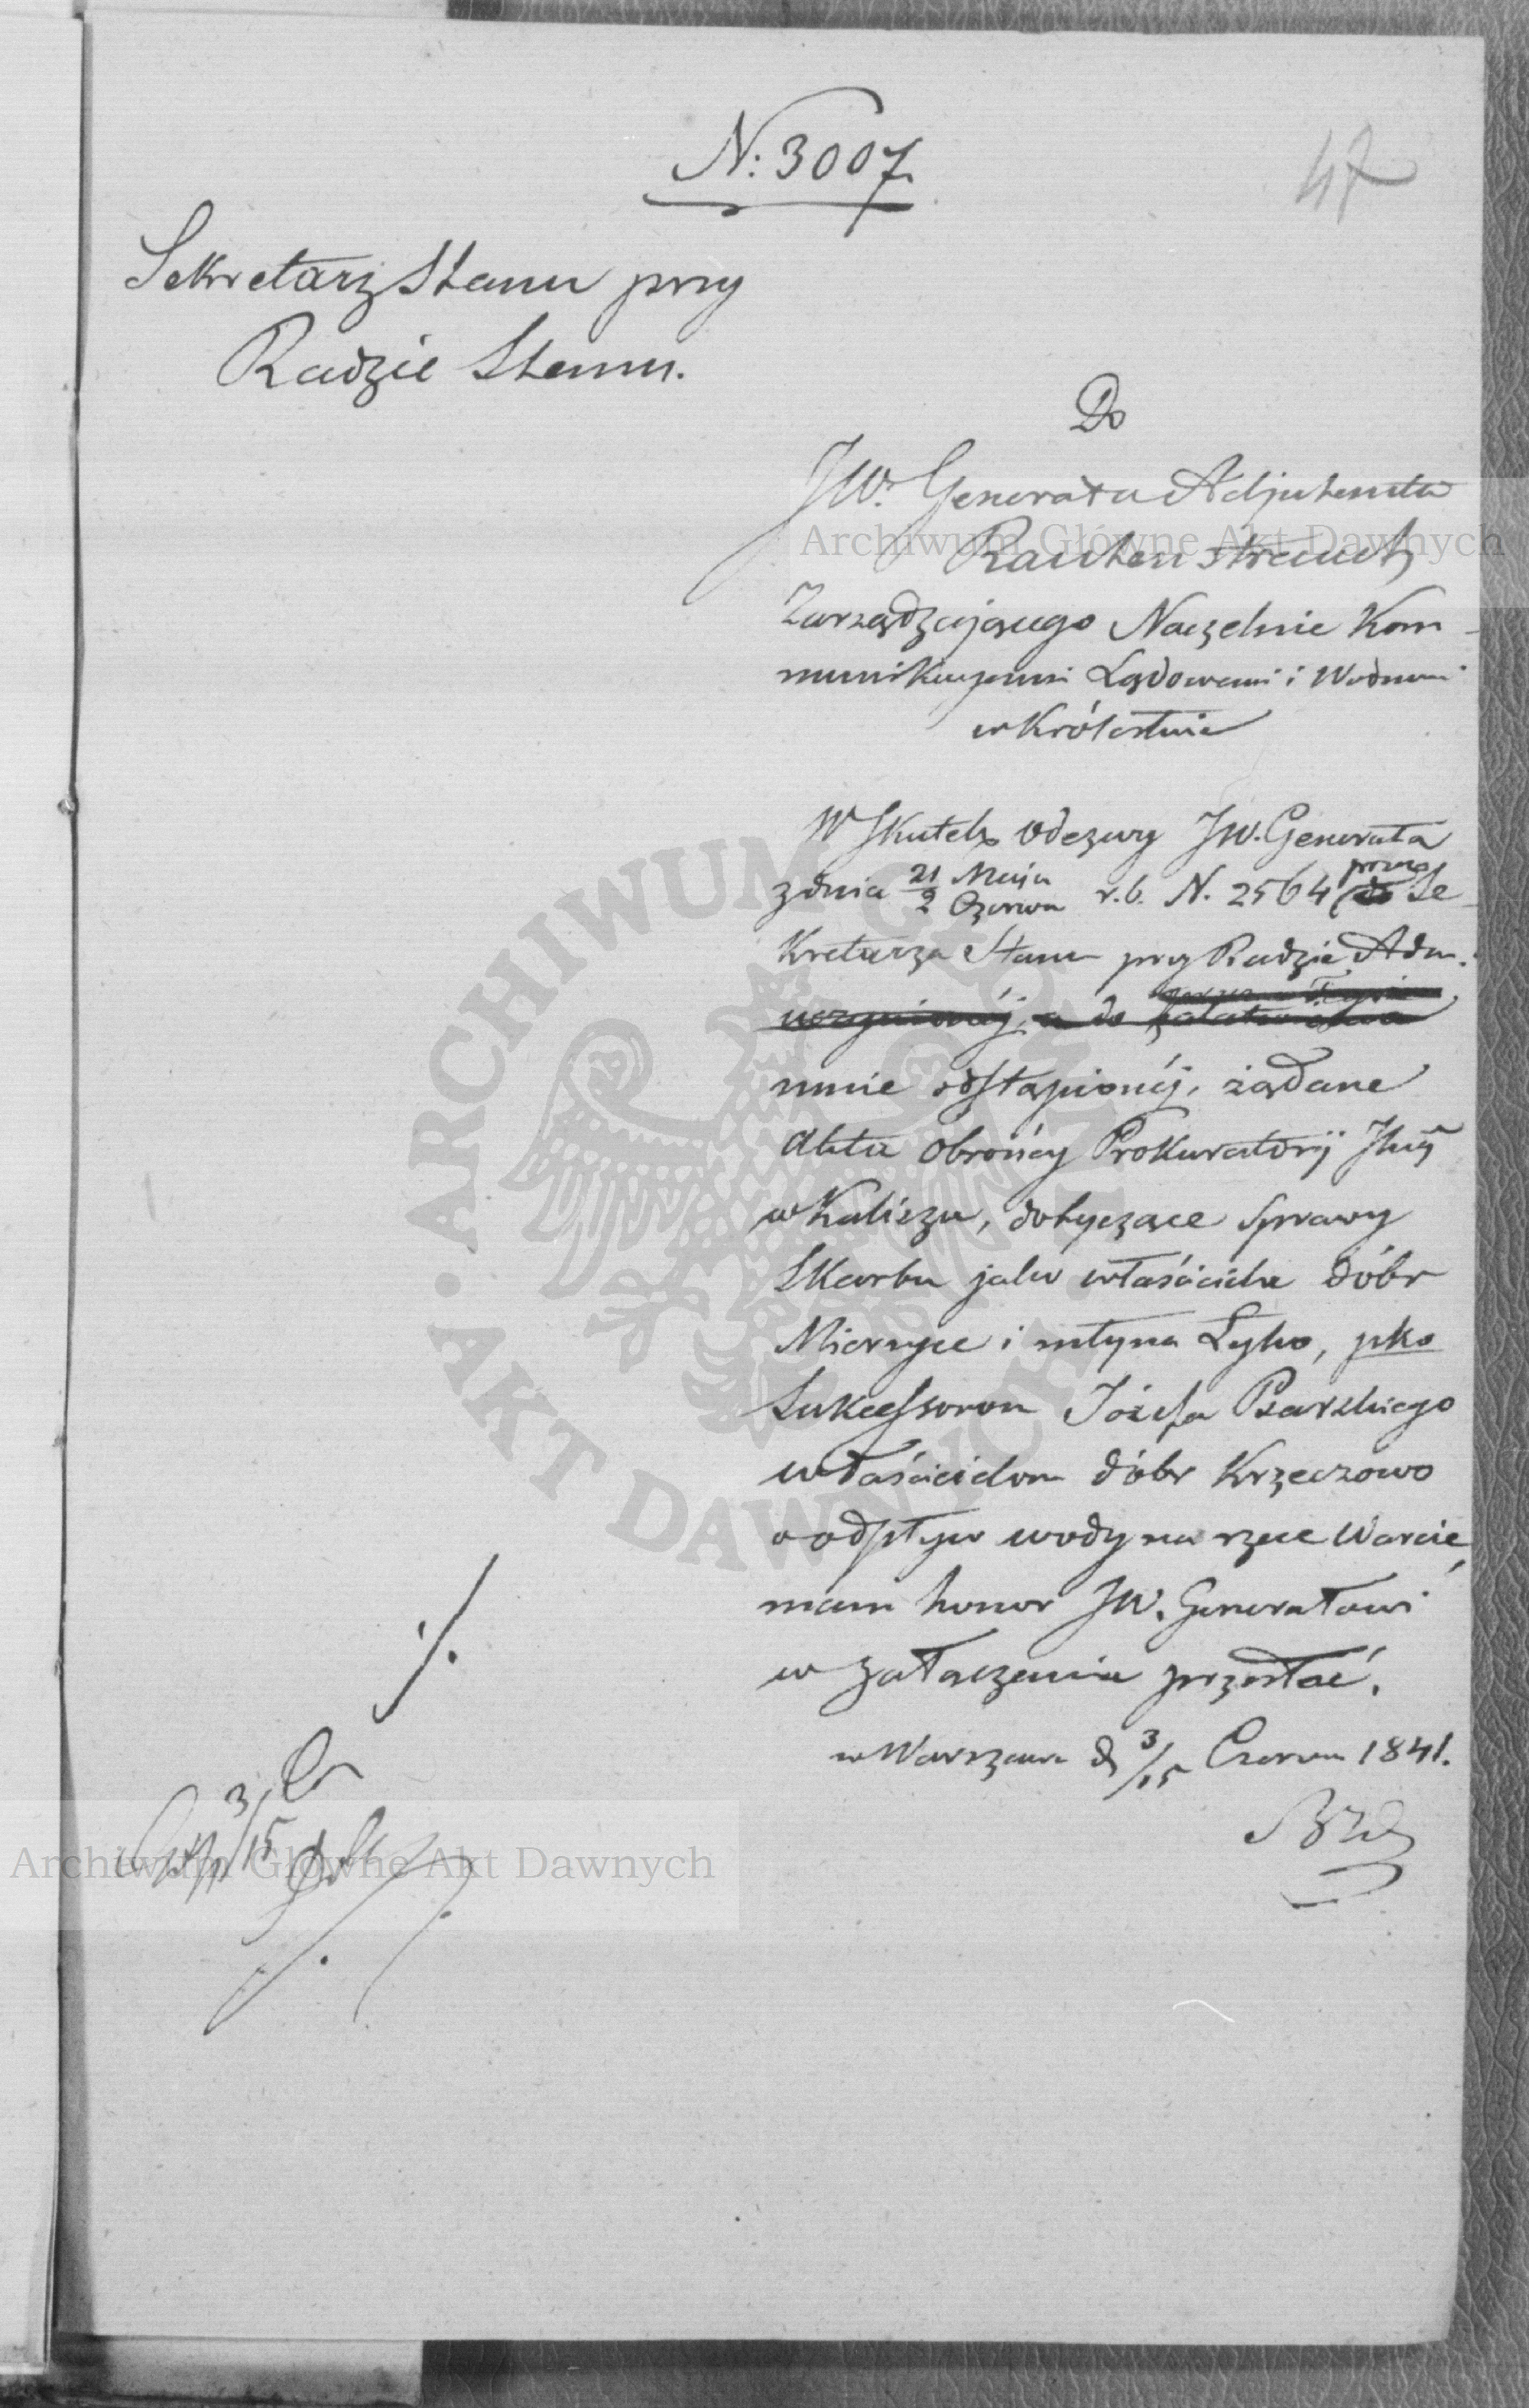 N: 3007
47
Sekretarz Stanu przy
Radzie Stanu.
Do
JW. Generała Adjutanta
Rautenstrauch
Zarządzającego Naczelnie Kom-
munikacyami Lądowemi i Wodnemi
w Królestwie
W Skutek odezwy JW. Generała
z dnia 21 Maja / 2 Czerwca r. b. N. 2564 przez do Se-
kretarza Stanu przy Radzie Adm.
uczynionéj, a do załatwienia
mnie odstąpionéj, żądane
Akta Obrońcy Prokuratorij
w Kaliszu, dotyczące sprawy
Skarbu jako właściciela dóbr
Mierzyce i młyna Łyko, pko
Sukcessorom Józefa Psarskiego
właścicielom dóbr Krzeczowo
o odpływ wody na rzece Warcie,
mam honor JW. Generałowi
w załączeniu przesłać.
w Warszawie d 3/15 Czerwca 1841.
3/15
Archiwum Główne Akt Dawnych
Archiwum Główne Akt Dawnych
ARCHIWUM GŁÓWNE
AKT DAWNYCH